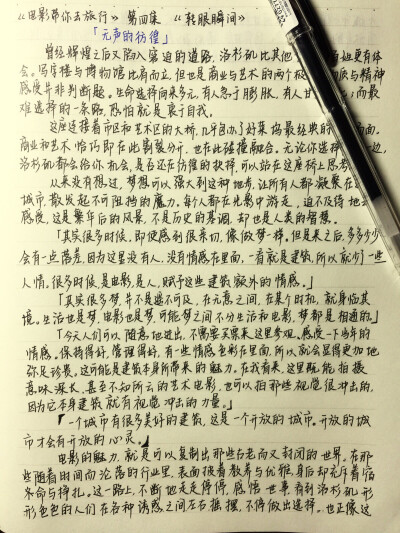 《电影带你去旅行》 第四集 《转眼瞬间》
「无声的彷徨」
曾经辉煌之后又陷入窘迫的道路，洛杉矶比其他更有体
会。写字楼与博物馆比肩而立，但也是商业与艺术的两个极与精神
感受并非判断题。生命选择向来多元，有人忽于膨胀，有人甘；而最
难选择的一条路，恐怕就是衷于自我。
这座连接着市区和艺术区的大桥，几乎包办了好莱坞最经典的面。
商业和艺术恰巧即在此割裂分，也在此碰撞融合。无论你选择边，
洛杉矶都会给你机会，是否还在彷徨的抉择，可以站在这座桥上思考
从来没有想过，梦想可以强大到这种地步，让所有人都凝聚在这
城市，散发起不可阻挡的魔力。每个人都在光影中游走，迫不及待地
感受，这是繁华后的风景，不是历史的基调，却也是人类的智慧。
「其实很多时候，即使感到很亲切，像做梦一样。但是来之后，多多少少
会有一些落差，因为这里没有人，没有情感在里面，一看就是建筑，所以就少了一些
人情。很多时候，是电影，是人，赋予这些建筑额外的情感。」
「其实很多梦，并不是遥不可及，在无意之间，在某个时机，就身临其
境。生活也是梦，电影也是梦，可能梦之间不分生活和电影，梦都是相通的。」
「今天人们可以随意地进出，不需要买票来这里参观，感受一下当年的
情感。保持得好，管理得好，有一些情感色彩在里面，所以就会显得更加地
弥足珍贵。这可能是建筑本身所带来的魅力。在我看来，这里既能拍摄
意味深长，甚至不知所云的艺术电影，也可以拍那些视觉很冲击的，
因为它本身建筑就有视觉冲击的力量。」
「一个城市有很多美好的建筑，这是一个开放的城市。开放的城
市才会有开放的心灵。」
电影的魅力，就是可以复制出那些古老而又封闭的世界。在那
些随着时间而沦落的行业里，表面披着教养与优雅，身后却充斥着宿
命与挣扎。这一路上，不断地走走停停，感悟世事，看到洛杉矶形
形色色的人们在各种诱惑之间左右摇摆，不停做出选择。也正像这